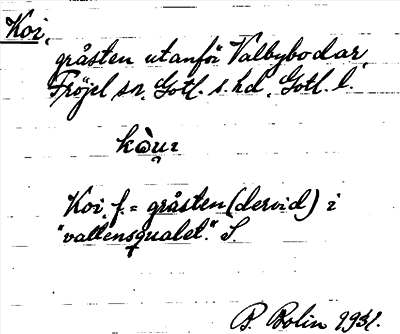 Koi,
gråsten utanför Valbybodar,
Fröjel sn, Gotl. s. hd, Gotl. l.
Koi, f. = gråsten (dervid) i
"vattensqualet." S.
B. Bolin 1931.